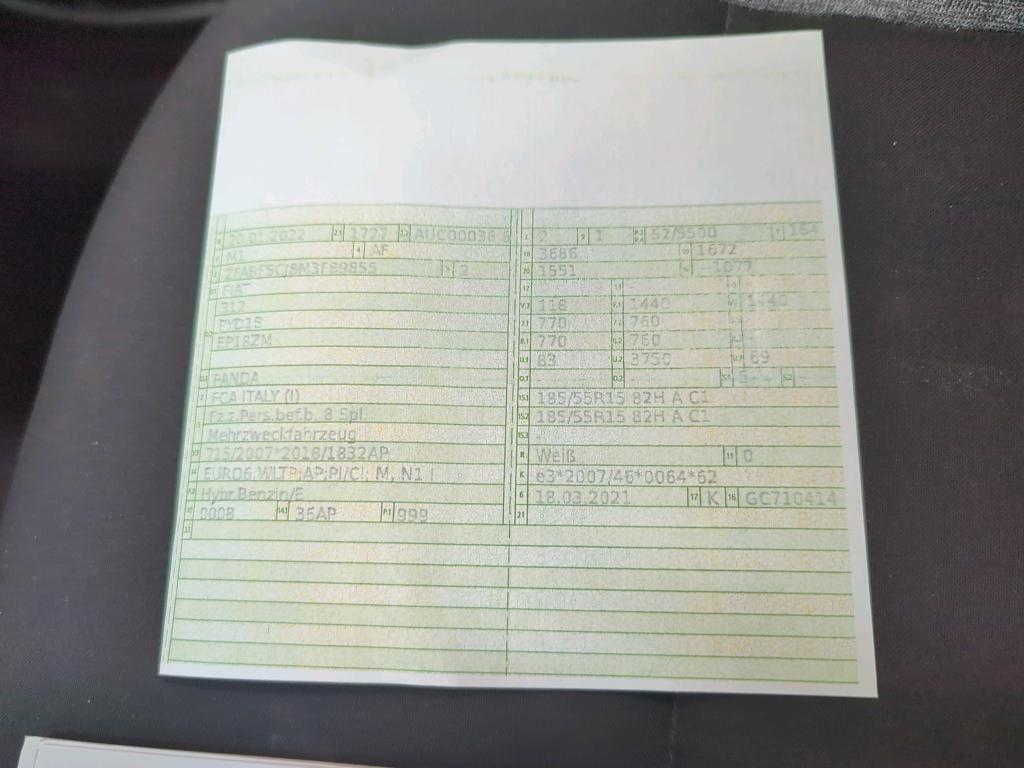 20.01.2022 2.1 1727 2.2 AUC00036 8
M1 4 AF
2
FIAT
312
PYD1B
FP18ZM
PANDA
FCA ITALY (I)
Fz.z.Pers.bef.b. 8 Spl.
Mehrzweckfahrzeug
715/2007*2018/1832AP
EURO6;WLTP;AP;PI/CI; M, N1 I
Hybr.Benzin/E
0008 14.1 36AP P.1 999
22
L 2 9 1 52/5500 T 164
18 3686 19 1672
20 1551 1077
12 - 13 -
V.7 118 F.1 1440 1440
7.1 770 7.2 760
8.1 770 8.2 760
U.1 83 U.2 3750 U.3 69
O.1 - O.2 - S.1 5 S.2
15.1 185/55R15 82H A C1
15.2 185/55R15 82H A C1
15.3 -
R Weiß 11 0
K e3*2007/46*0064*62
6 18.03.2021 17 K 16 GC710414
21